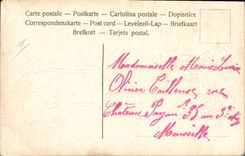 Carte postale - Postkarte - Cartolina postale - Dopisnice
Correspondenzkarte - Post card - Levelező-Lap - Briefkaart
Brefkort - Tarjeta postal.
Mademoiselle Marie Louise
Olivier
Château 55 au 3e
Marseille